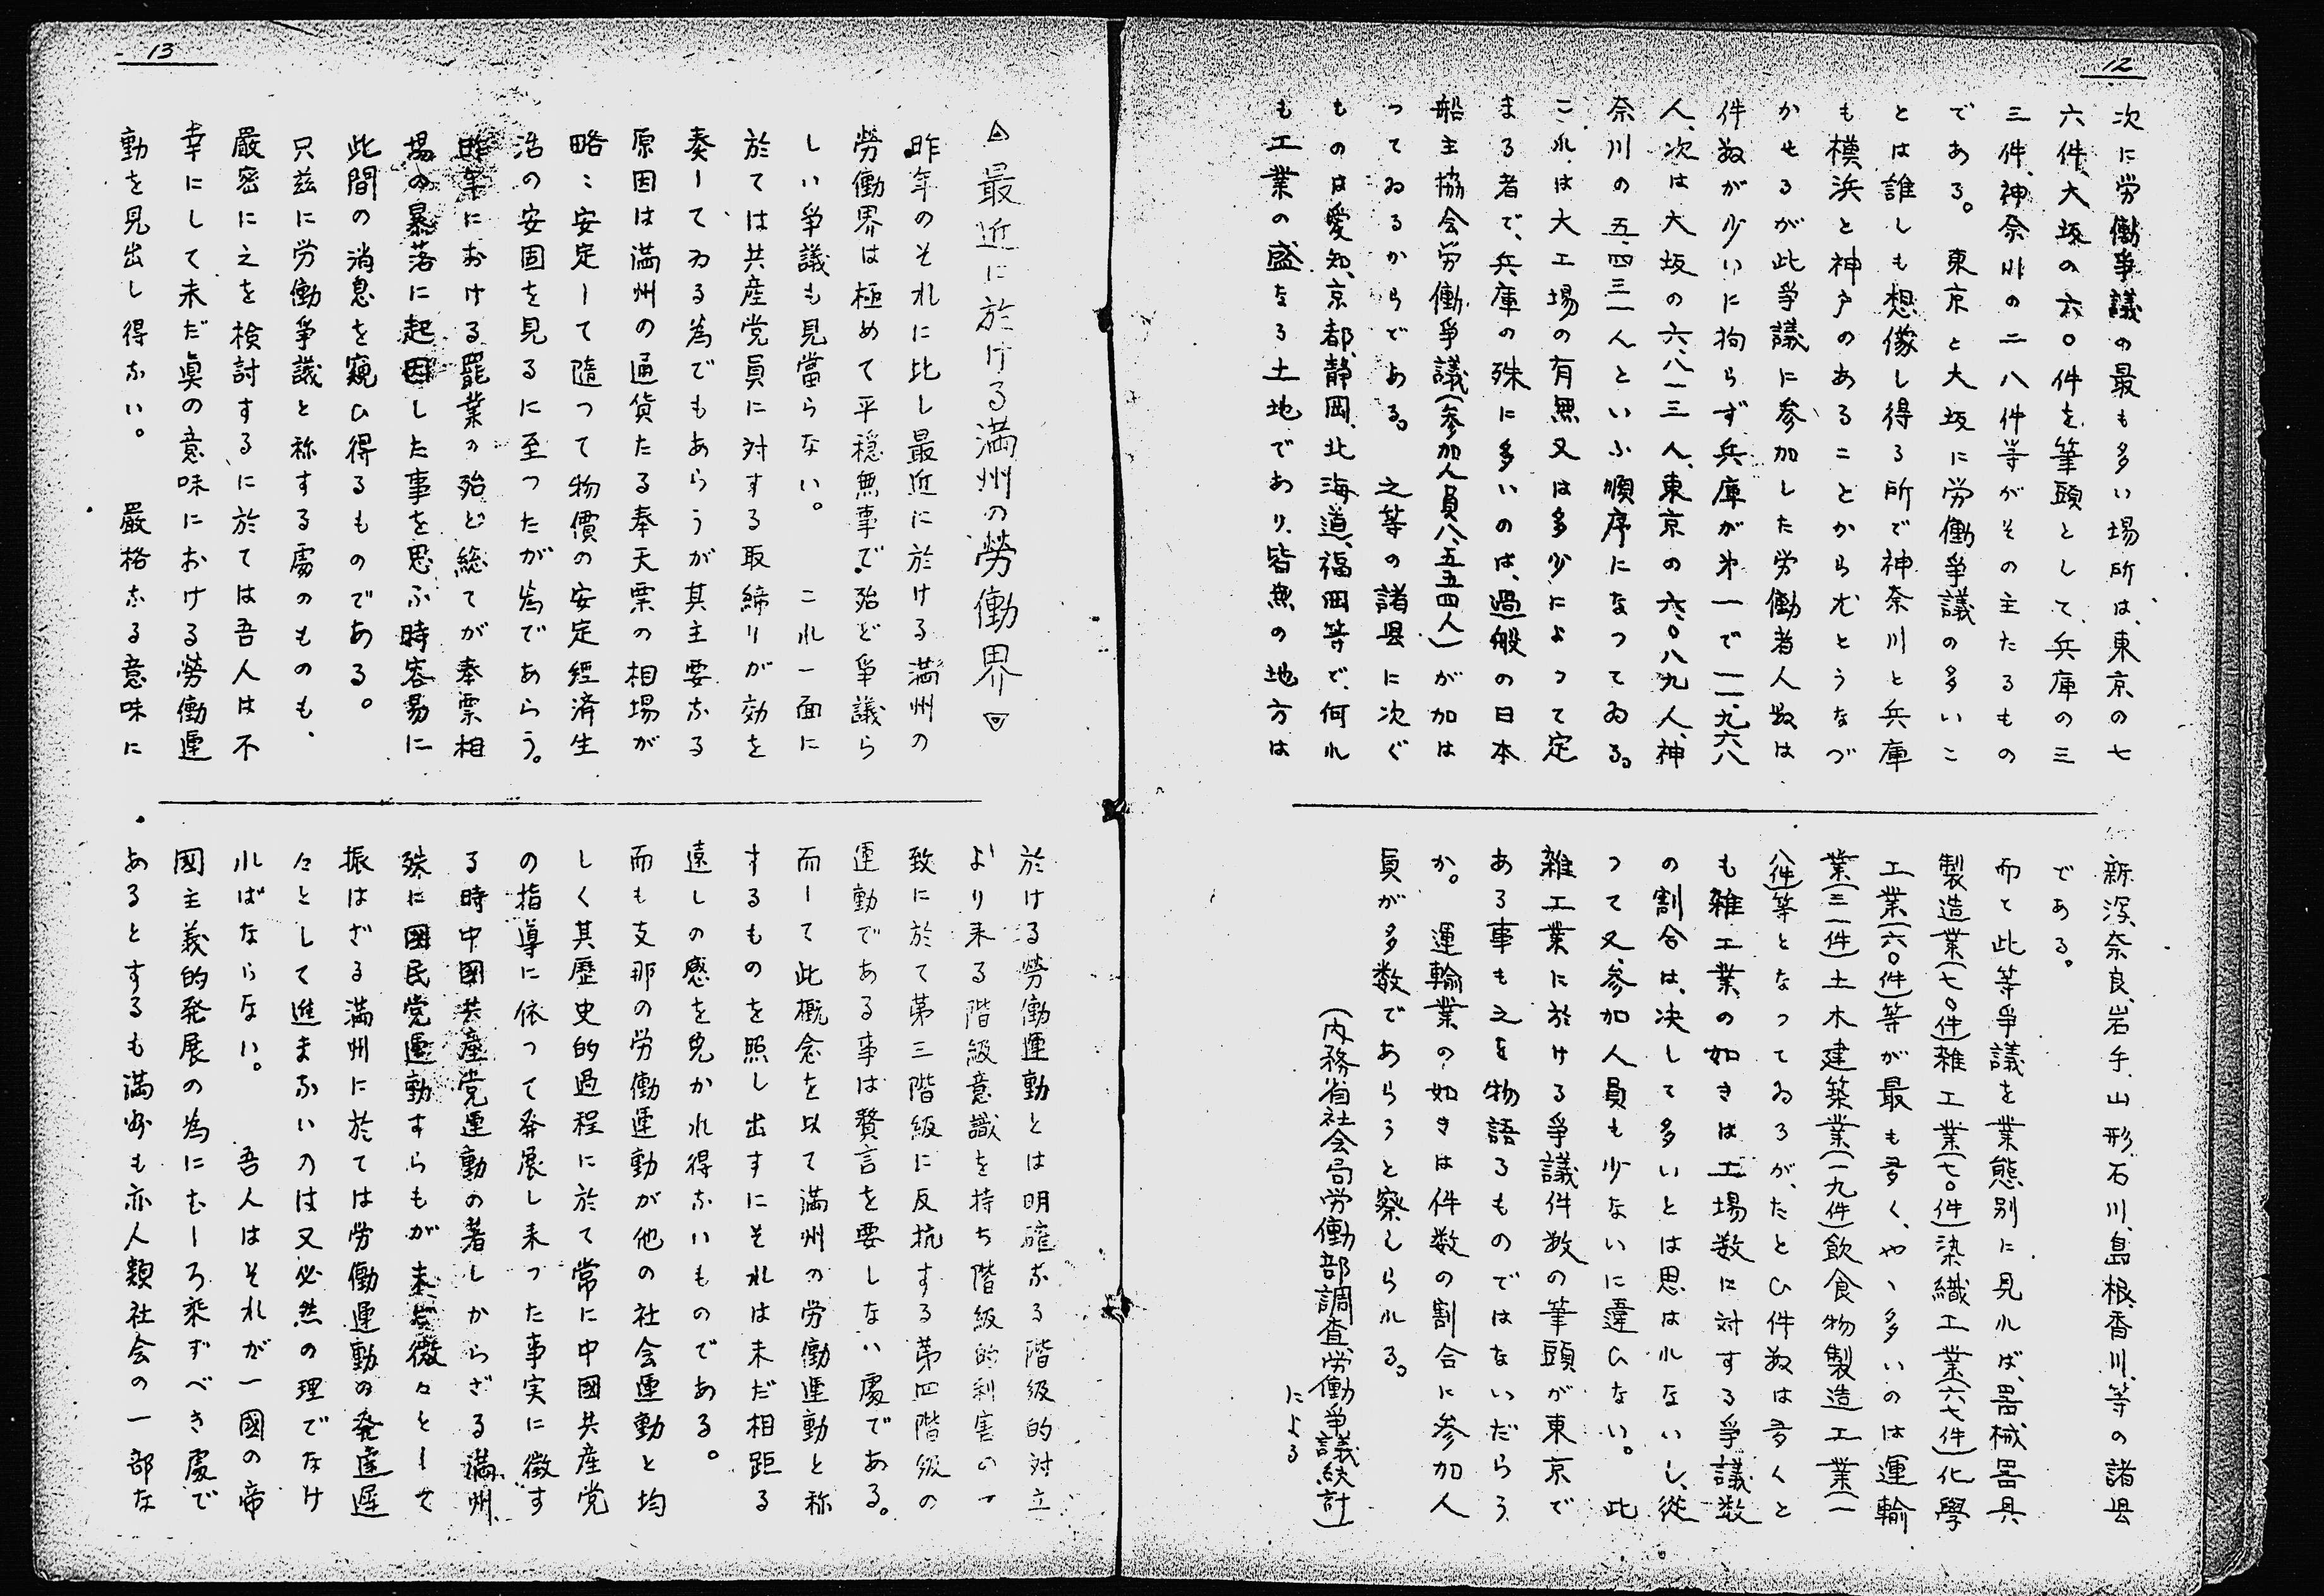 12
次に労働争議の最も多い場所は、東京の七
六件、大坂の六〇件を筆頭として、兵庫の三
三件、神奈川の二八件等がその主たるもの
である。東京と大坂に労働争議の多いこ
とは誰しも想像し得る所で神奈川と兵庫
も横浜と神戸のあることからもとうなづ
かせるが此争議に参加した労働者人数は
件数が少いに拘らず兵庫が第一で一一、九六八
人、次は大坂の六、八一三人、東京の六、〇八九人、神
奈川の五、四三一人といふ順序になつてゐる。
これは大工場の有無又は多少によつて定
まる者で、兵庫の殊に多いのは、過般の日本
船主協会労働爭議(参加人員八、五五四人)が加は
つてゐるからである。之等の諸县に次ぐ
ものは愛知、京都、静岡、北海道、福岡等で、何れ
も工業の盛なる土地であり、皆無の地方は
新潟、奈良、岩手、山形、石川、島根、香川、等の諸县
である。
而して此等爭議を業態別に見れば、器械器具
製造業(七〇件)雑工業(七〇件)染織工業(六七件)化學
工業(六〇件)等が最も多く、やゝ多いのは運輸
業(三一件)土木建築業(一九件)飲食物製造工業(一
八件)等となつてゐるが、たとひ件数は多くと
も雑工業の如きは工場数に対する爭議数
の割合は、决して多いとは思はれないし、從
つて又、参加人員も少ないに違ひない。此
雑工業に於ける爭議件数の筆頭が東京で
ある事も之を物語るものではないだらう
か。運輸業の如きは件数の割合に参加人
員が多数であらうと察しられる。
(内務省社会局労働部調査、労働争議統計)
による
13
△最近に於ける満州の勞働界▽
昨年のそれに比し最近に於ける満州の
勞働界は極めて平穏無事で、殆ど爭議ら
しい爭議も見當らない。これ一面に
於ては共産党員に対する取締りが効を
奏してゐる為でもあらうが其主要なる
原因は満州の通貨たる奉天票の相場が
略々安定して隨つて物價の安定經済生
活の安固を見るに至つたが為であらう。
昨年における罷業の殆ど総てが奉票相
場の暴落に起因した事を思ふ時容易に
此間の消息を窺ひ得るものである。
只玆に労働爭議と称する處のものも、
嚴密に之を検討するに於ては吾人は不
幸にして未だ眞の意味における勞働運
動を見出し得ない。嚴格なる意味に
於ける勞働運動とは明確なる階級的対立
より来る階級意識を持ち階級的利害の一
致に於て第三階級に反抗する第四階級の
運動である事は贅言を要しない處である。
而して此概念を以て満州の労働運動と称
するものを照し出すにそれは未だ相距る
遠しの感を免かれ得ないものである。
而も支那の労働運動が他の社会運動と均
しく其歴史的過程に於て常に中國共産党
の指導に依つて発展し来つた事実に徴す
る時中國共産党運動の著しからざる満州、
殊に國民党運動すらもが未だ微々として
振はざる満州に於ては労働運動の発達遅
々として進まないのは又必然の理でなけ
ればならない。吾人はそれが一國の帝
國主義的発展の為にむしろ乘ずべき處で
あるとするも満州も亦人類社会の一部な